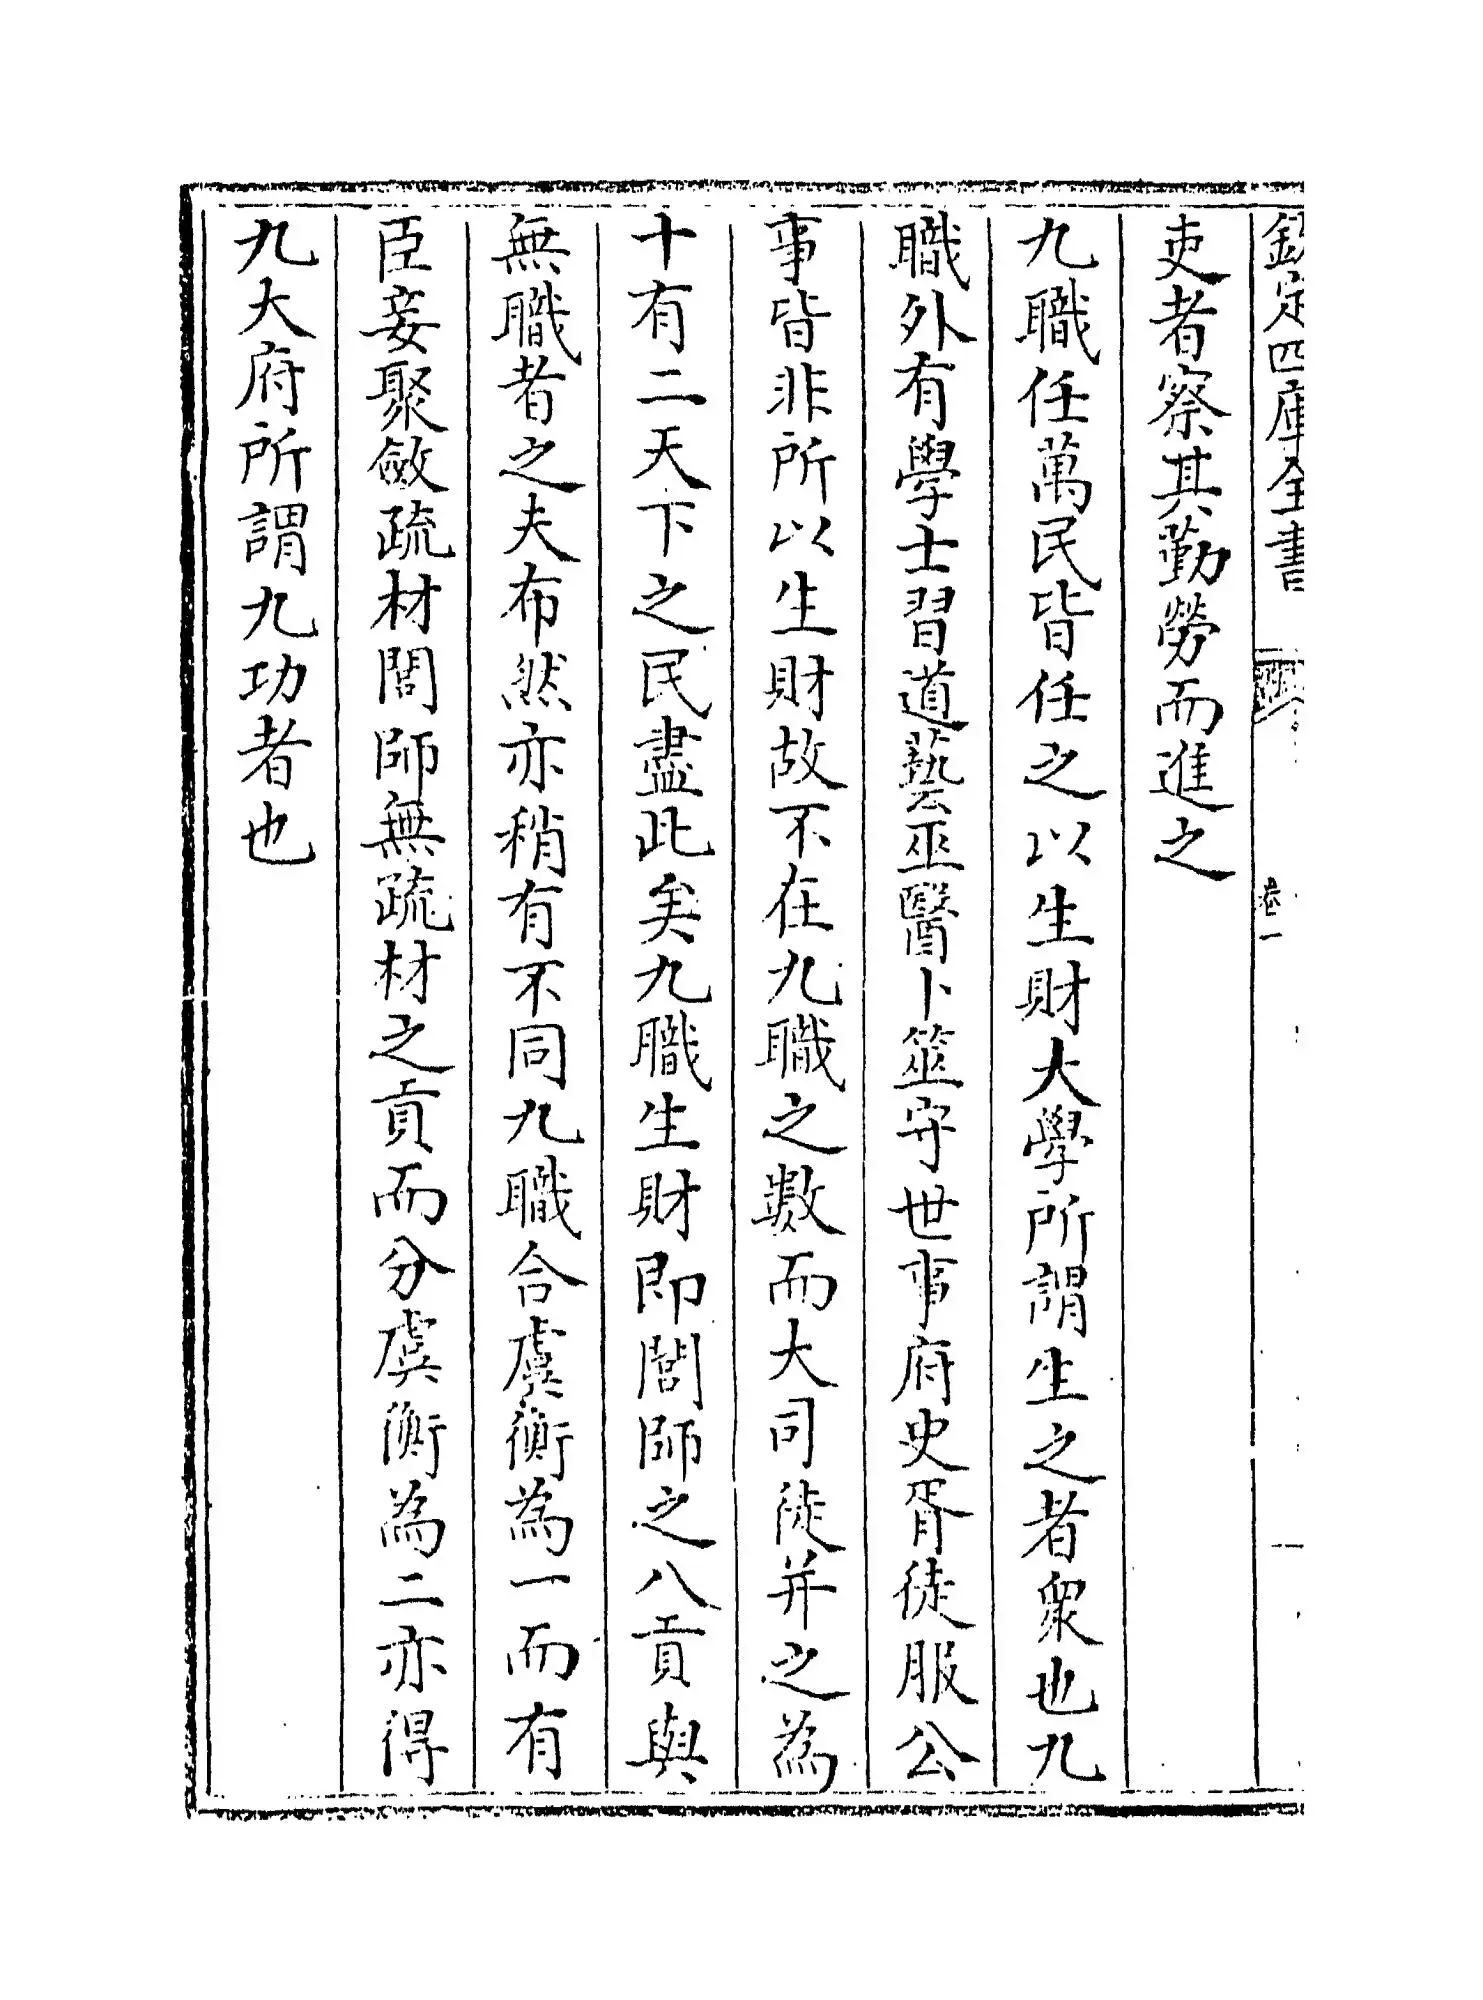 欽定四庫全書 卷一
吏者察其勤勞而進之
九職任萬民皆任之以生財大學所謂生之者衆也九
職外有學士習道藝巫醫卜筮守世事府史胥徒服公
事皆非所以生財故不在九職之數而大司徒并之為
十有二天下之民盡此矣九職生財即閭師之八貢與
無職者之夫布然亦稍有不同九職合虞衡為一而有
臣妾聚斂疏材閭師無疏材之貢而分虞衡為二亦得
九大府所謂九功者也